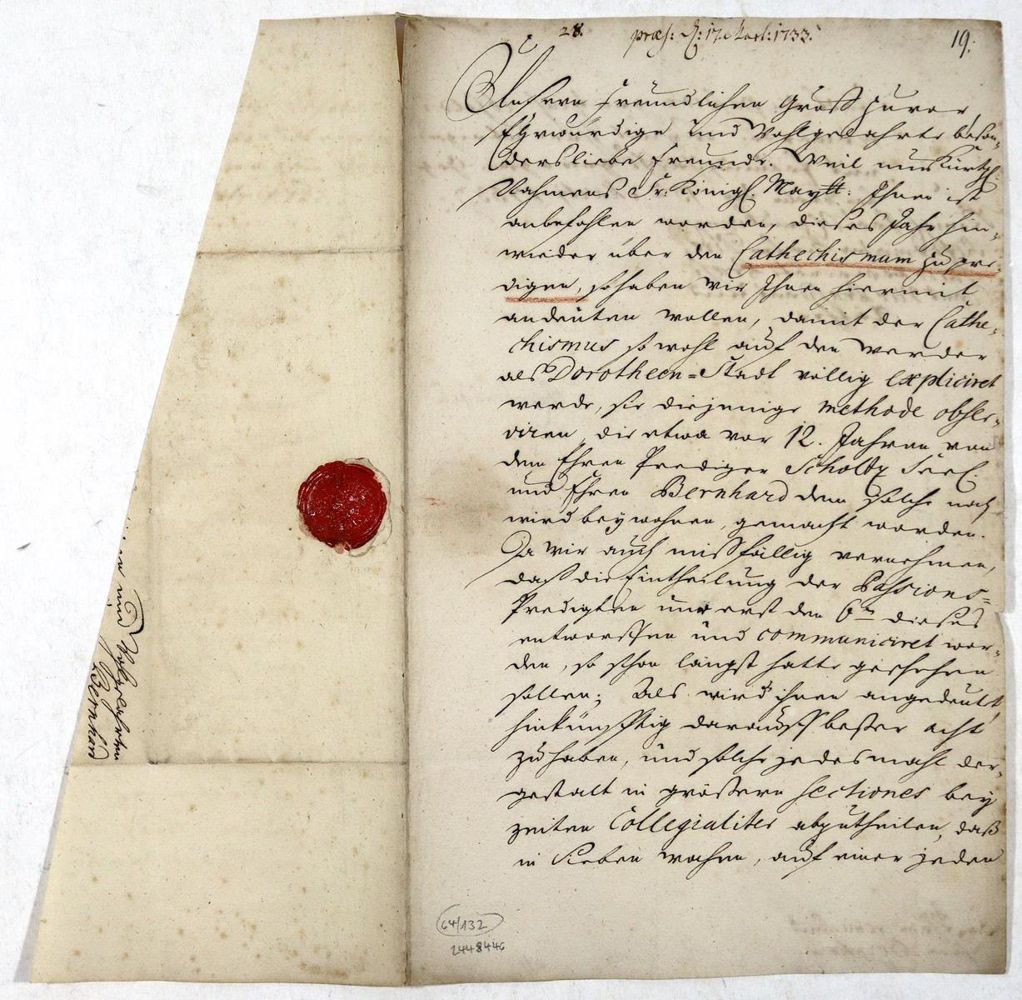 28.
præs: d: 17. Mart: 1733.
19.
Unsern freundlichen Gruß zuvor
Ehrwürdige und Wohlgelahrte beson-
dersliebe Freunde. Weil nun
Nahmens Sr: Königl. Maytt: Ihnen ist
anbefohlen worden, dieses Jahr hin-
wieder über den Cathechismum zu pre-
digen, so haben wir Ihnen hiermit
andeuten wollen, damit der Cathe-
chismus so wohl auf den Werder
als Dorotheen-Stadt völlig expliciret
werde, sie diejenige methode obser-
viren, die etwa vor 12. Jahren von
dem Ehren Prediger Scholtz Seel.
und Ehren Bernhard dem solche noch
wird beywohnen, gemacht worden.
Da wir auch mißfällig vernehmen,
daß die Eintheilung der Passions-
Predigten nur erst den 6ten dieses
entworffen und communiciret wor-
den, so schon längst hatte geschehen
sollen; Als wird ihnen angedeutet,
hinkünfftig darauff beßer acht
zu haben, und solche jedesmahl der-
gestalt in größere sectiones bey
zeiten Collegialiter abzutheilen, daß
in sieben wochen, auf einer jeden
und Wohlgelahrten
Bernhard
64/132
2448446